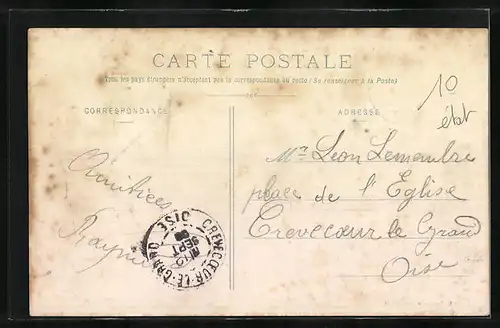 CARTE POSTALE
Tous les pays étrangers n'acceptent pas la correspondance au recto (Se renseigner à la Poste)
CORRESPONDANCE
ADRESSE
10
état
Amitiés
Mr Léon Lemembre
place de l'Eglise
Crevecœur le Grand
Oise
CREVECŒUR-LE-GRAND OISE
SEPT